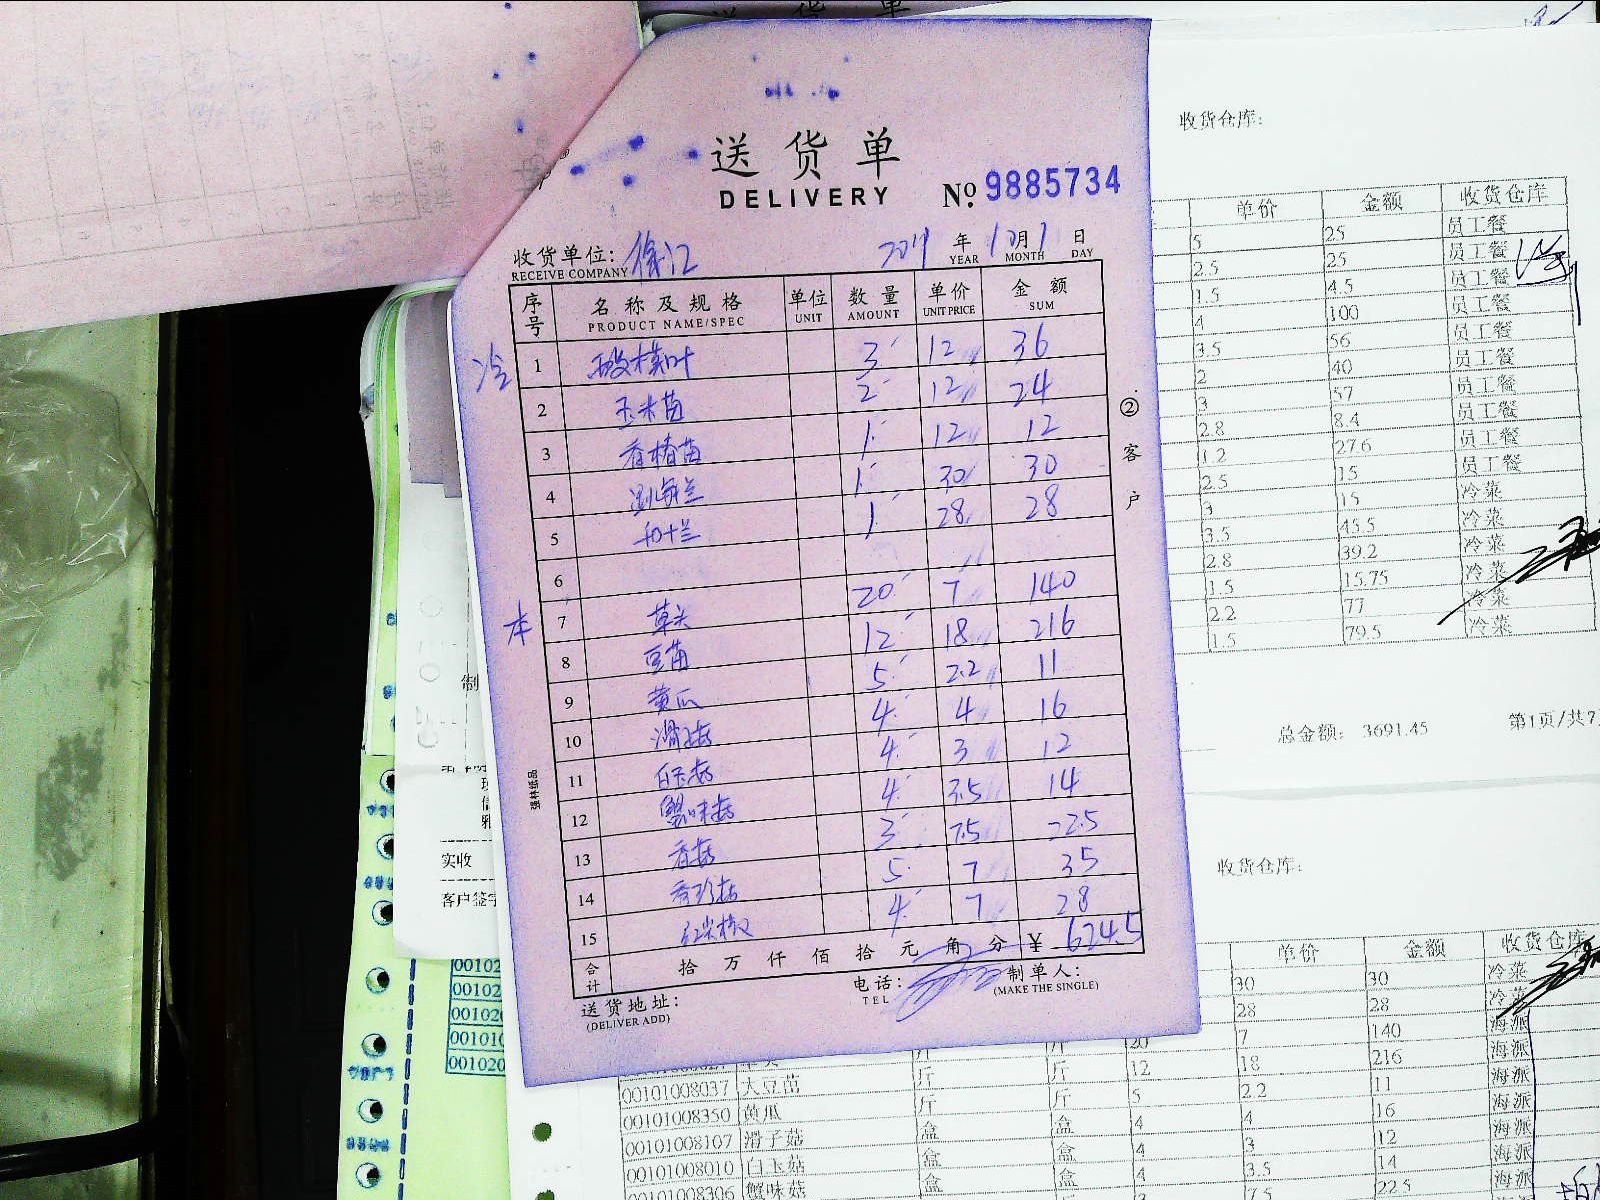 送货单
DELIVERY
№ 9885734
收货单位: 徐汇
RECEIVE COMPANY
年 10月 1 日
YEAR MONTH DAY
序号 名称及规格 单位 数量 单价 金额
PRODUCT NAME/SPEC UNIT AMOUNT UNIT PRICE SUM
冷 1 3 12 36
2 玉米苗 2 12 24
3 香椿苗 1 12 12
4 1 30 30
5 1 28 28
6
本 7 草头 20 7 140
8 豆苗 12 18 216
9 黄瓜 5 2.2 11
10 滑子菇 4 4 16
11 白玉菇 4 3 12
12 蟹味菇 4 3.5 14
13 香菇 3 7.5 22.5
14 秀珍菇 5 7 35
15 红尖椒 4 7 28
合计 拾 万 仟 佰 拾 元 角 分 ¥ 624.5
送货地址: 电话: 制单人:
(DELIVER ADD) TEL (MAKE THE SINGLE)
② 客户
收货仓库:
单价 金额 收货仓库
5 25 员工餐
2.5 25 员工餐
1.5 4.5 员工餐
4 100 员工餐
3.5 56 员工餐
2 40 员工餐
3 57 员工餐
2.8 8.4 员工餐
1.2 27.6 员工餐
2.5 15 员工餐
3 15 冷菜
3.5 45.5 冷菜
2.8 39.2 冷菜
1.5 15.75 冷菜
2.2 77 冷菜
1.5 79.5 冷菜
总金额: 3691.45 第1页/共7
收货仓库:
单价 金额 收货仓库
30 30 冷菜
28 28 冷菜
斤 斤 20 7 140 海派
斤 斤 12 18 216 海派
00101008037 大豆苗 斤 斤 5 2.2 11 海派
00101008350 黄瓜 盒 盒 4 4 16 海派
00101008107 滑子菇 盒 盒 4 3 12 海派
00101008010 白玉菇 盒 盒 4 3.5 14 海派
00101008306 蟹味菇 7.5 22.5 海派
制
实收
客户签字
00102
00102
00102
00101
00102